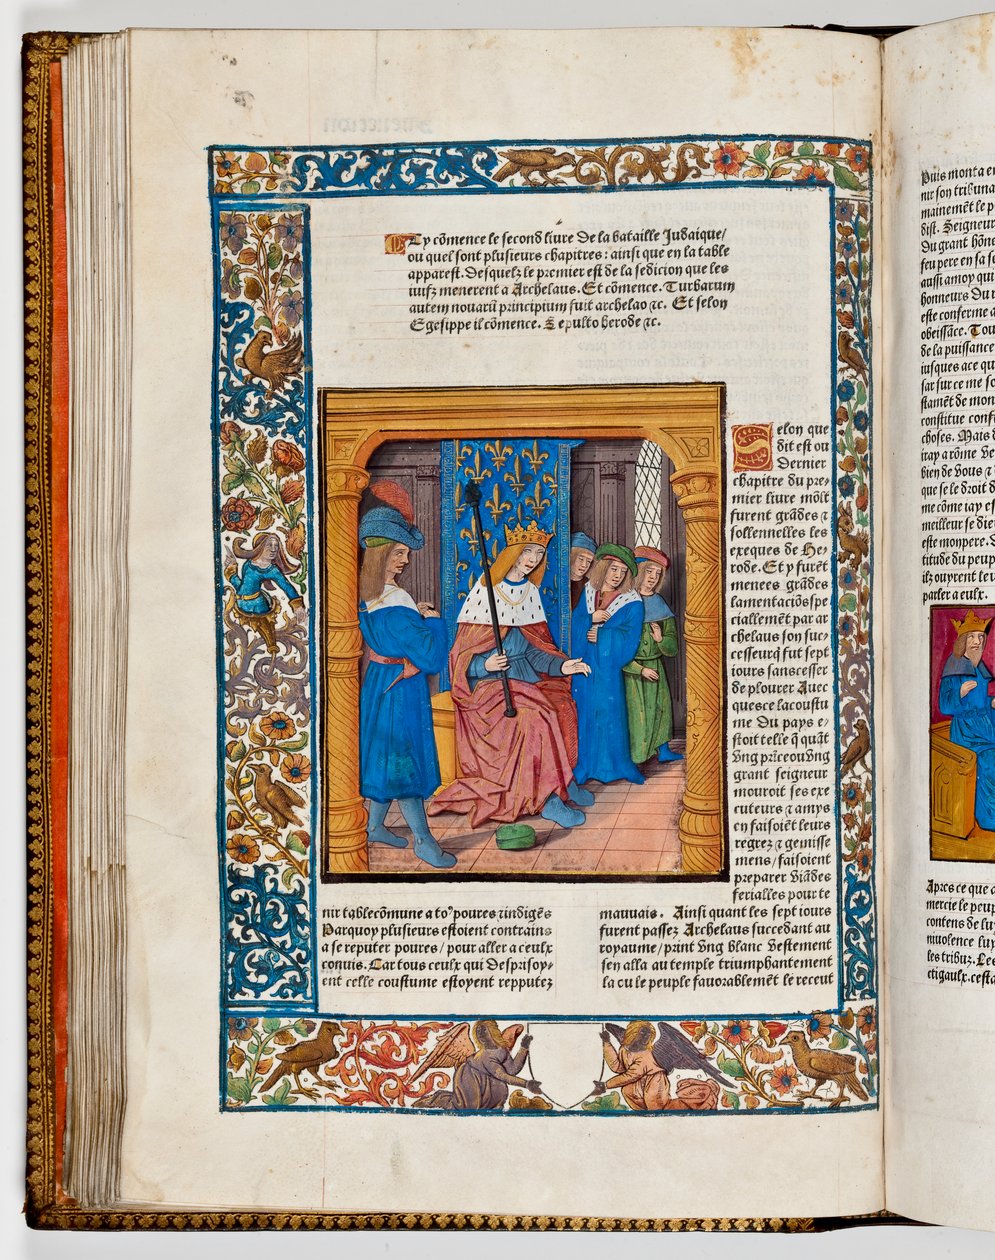 Cy cõmence le second liure de la bataille Judaique/
ou quel sont plusieurs chapitres: ainsi que en la table
apparest. Desquelz le premier est de la sedicion que les
iuifz menerent a Archelaus. Et cõmence. Turbarum
autem nouarũ principium fuit archelao ⁊c. Et selon
Egesippe il cõmence. Sepulto herode ⁊c.
Selon que
dit est ou
dernier
chapitre du pre/
mier liure mõlt
furent grãdes ⁊
sollennelles les
exeques de He/
rode. Et y furẽt
menees grãdes
lamentaciõs spe
ciallement par ar
chelaus son suc/
cesseur q̃ fut sept
iours sans cesser
de plourer Auec
quesce la coustu
me du pays e/
stoit telle q̃ quãt
vng prĩce ou vng
grant seigneur
mouroit ses exe
cuteurs ⁊ amys
en faisoiẽt leurs
regrez ⁊ gemisse
mens/ faisoient
preparer viãdes
ferialles pour te
nir table cõmune a toꝰ poures ⁊ indigẽs
Parquoy plusieurs estoient contrains
a se reputer poures/ pour aller a ceulx
conuis. Car tous ceulx qui desprisoy/
ent celle coustume estoyent repputez
mauuais. Ainsi quant les sept iours
furent passez Archelaus succedant au
royaume/ print vng blanc vestement
sen alla au temple triumphantement
la cu le peuple fauorablemẽt le receut
Puis monta e
nir son tribuna
mainemẽt le p
dist. Seigneur
du grant hõne
feu pere en sa s
aussi a moy qui
honneurs du r
este conferme a
obeissãce. Tou
de la puissance
iusques a ce qu
sar sur ce me so
stamẽt de mon
constitue conf
choses. Mais d
irap a rõme ve
bien de vous ⁊
que se le droit d
me cõme iap es
meilleur se die
este mon pere. D
titude du peup
ilz ouyrent leu
parler a eulx.
Apres ce que a
mercie le peup
contens de lu
niuolence luy
les tribuz. Les
etigaulx. cesta